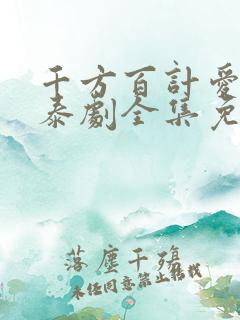 千方百計愛
泰劇全集免
落塵千殤
未经同意禁止转载